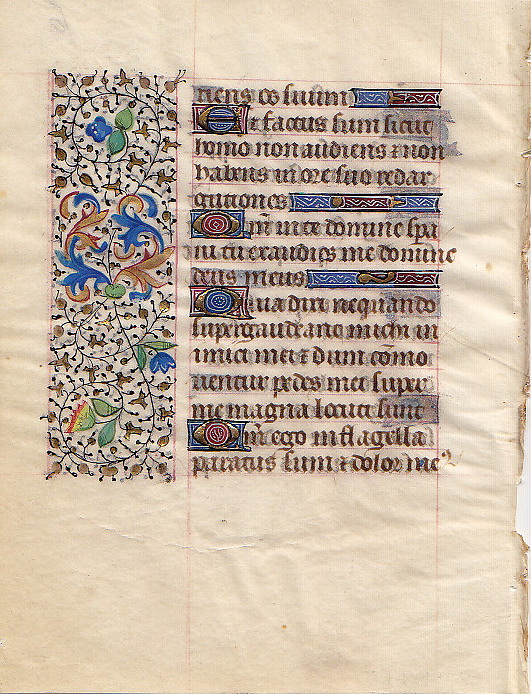 riens os suum
Et factus sum sicut
homo non audiens ⁊ non
habens in ore suo redar
gutiones
Qm̄ in te domine spa
ui tu exaudies me domine
deus meus
Quia dixi nequando
supergaudeant michi in
imici mei ⁊ dum cōmo
uentur pedes mei super
me magna locuti sunt
Qm̄ ego in flagella
paratus sum ⁊ dolor meꝰ